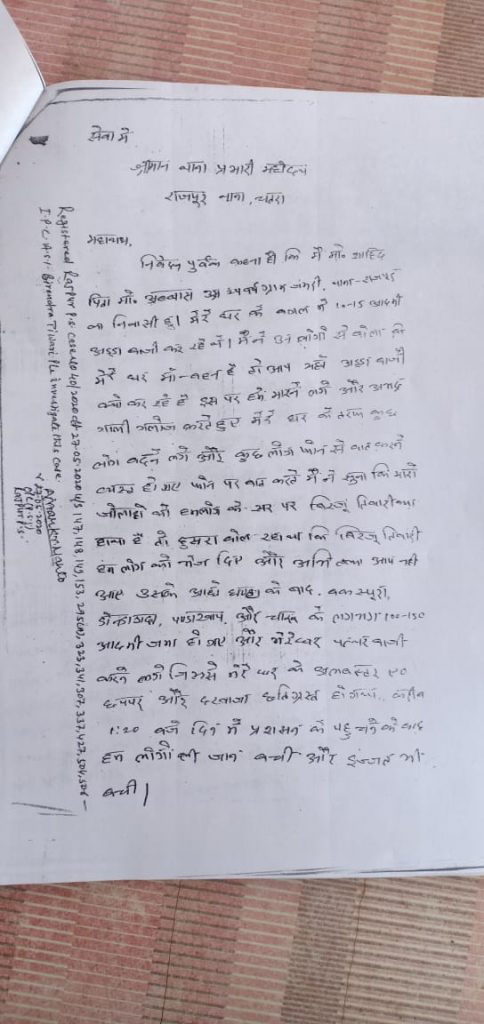 सेवा में
श्रीमान थाना प्रभारी महोदय
राजपुर थाना, चतरा
महाशय,
निवेदन पूर्वक कहना है कि मैं मो० शाहिद
पिता मो० अब्बास उम्र ग्राम थाना-राजपुर
का निवासी हूं। मेरे घर के बगल में 10-15 आदमी
अड्डा बाजी कर रहे थे। मैं ने उन लोगों से बोला कि
मेरे घर माँ-बहन है तो आप यहाँ अड्डा बाजी
क्यों कर रहे हैं इस पर हमें मारने लगे और
गाली गलौज करते हुए मेरे घर के तरफ कुछ
लोग बढ़ने लगे और कुछ लोग फोन से बात करने
लगा हो गए फोन पर बात करते मैं ने सुना कि मारो
जोलाहा को हमलोग के सर पर बिरजू तिवारी का
हाथ है तो दुसरा बोल रहा था कि बिरजू तिवारी
हम लोग को भेज दिए और अभी तक आप नहीं
आए उसके आधे घण्टा के बाद, बकसपुरा,
और के लगभग 100-150
आदमी जमा हो गए और मेरे घर पत्थर बाजी
करने लगे जिससे मेरे घर के अलबेस्टर
छप्पर और दरवाजा छतिग्रस्त हो गया, करीब
1:20 बजे दिन में प्रशासन के पहुचने के बाद
हम लोगों की जान बची और इज्जत भी
बची।
Registered Rajpur P.S. Case No 40/2020 dt 27-05-2020 u/s 147, 148, 149, 153, 295(A), 323, 341, 307, 337, 427, 504, 506
I.P.C. A.S.I. Birendra Tiwari Plz investigate this case.
27-05-2020
Rajpur P.S.